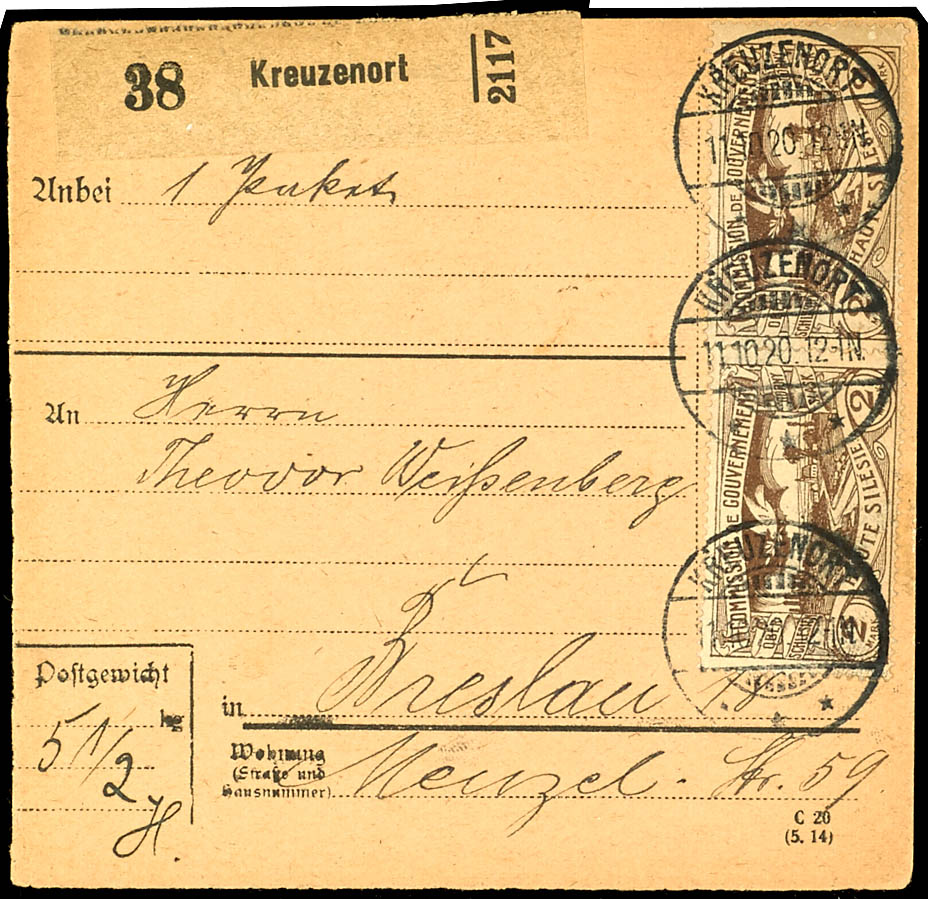 38 Kreuzenort 2117
Anbei 1 Paket
An Herrn
Theodor Weißenberg
in Breslau
Wohnung
(Straße und
Hausnummer)
Menzel-Str. 59
Postgewicht
kg
5 1/2
H.
C 20
(5. 14)
KREUZENORT
11.10.20. 12-1N.
COMMISSION DE GOUVERNEMENT
HAUTE SILESIE
KREUZENORT
11.10.20. 12-1N.
2
COMMISSION DE GOUVERNEMENT
HAUTE SILESIE
KREUZENORT
2